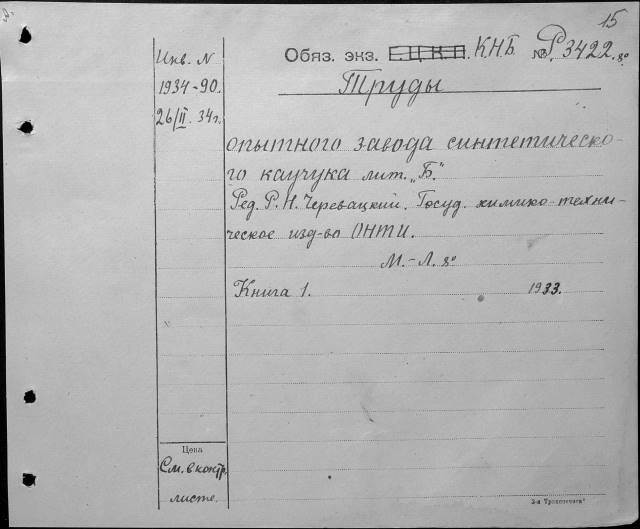 15
Инв. N
1934-90.
26/II. 34г.
Обяз. экз. Е.Ц.К.П. К.Н.Б. № Р3422.8º
Труды
опытного завода синтетическо-
го каучука лит. „Б."
Ред. Р. Н. Черевацкий. Госуд. химико-техни-
ческое изд-во ОНТИ.
М.-Л. 8º
Книга 1. 1933.
Цена
См. в контр.
листе.